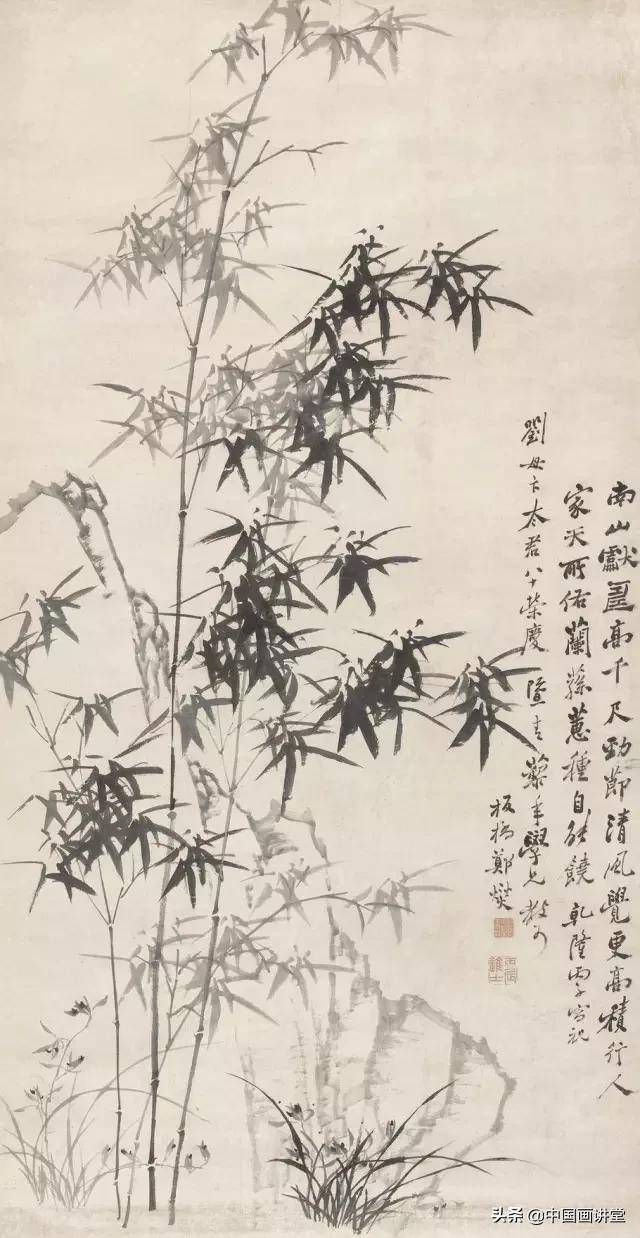 南山獻壽高千尺勁節清風覺更高積行人
家天所佑蘭蓀蕙種自能饒 乾隆丙子寫祝
劉母卞太君八十榮慶
藜年學兄教可
板橋鄭燮
丙辰進士
头条 @中国画讲堂